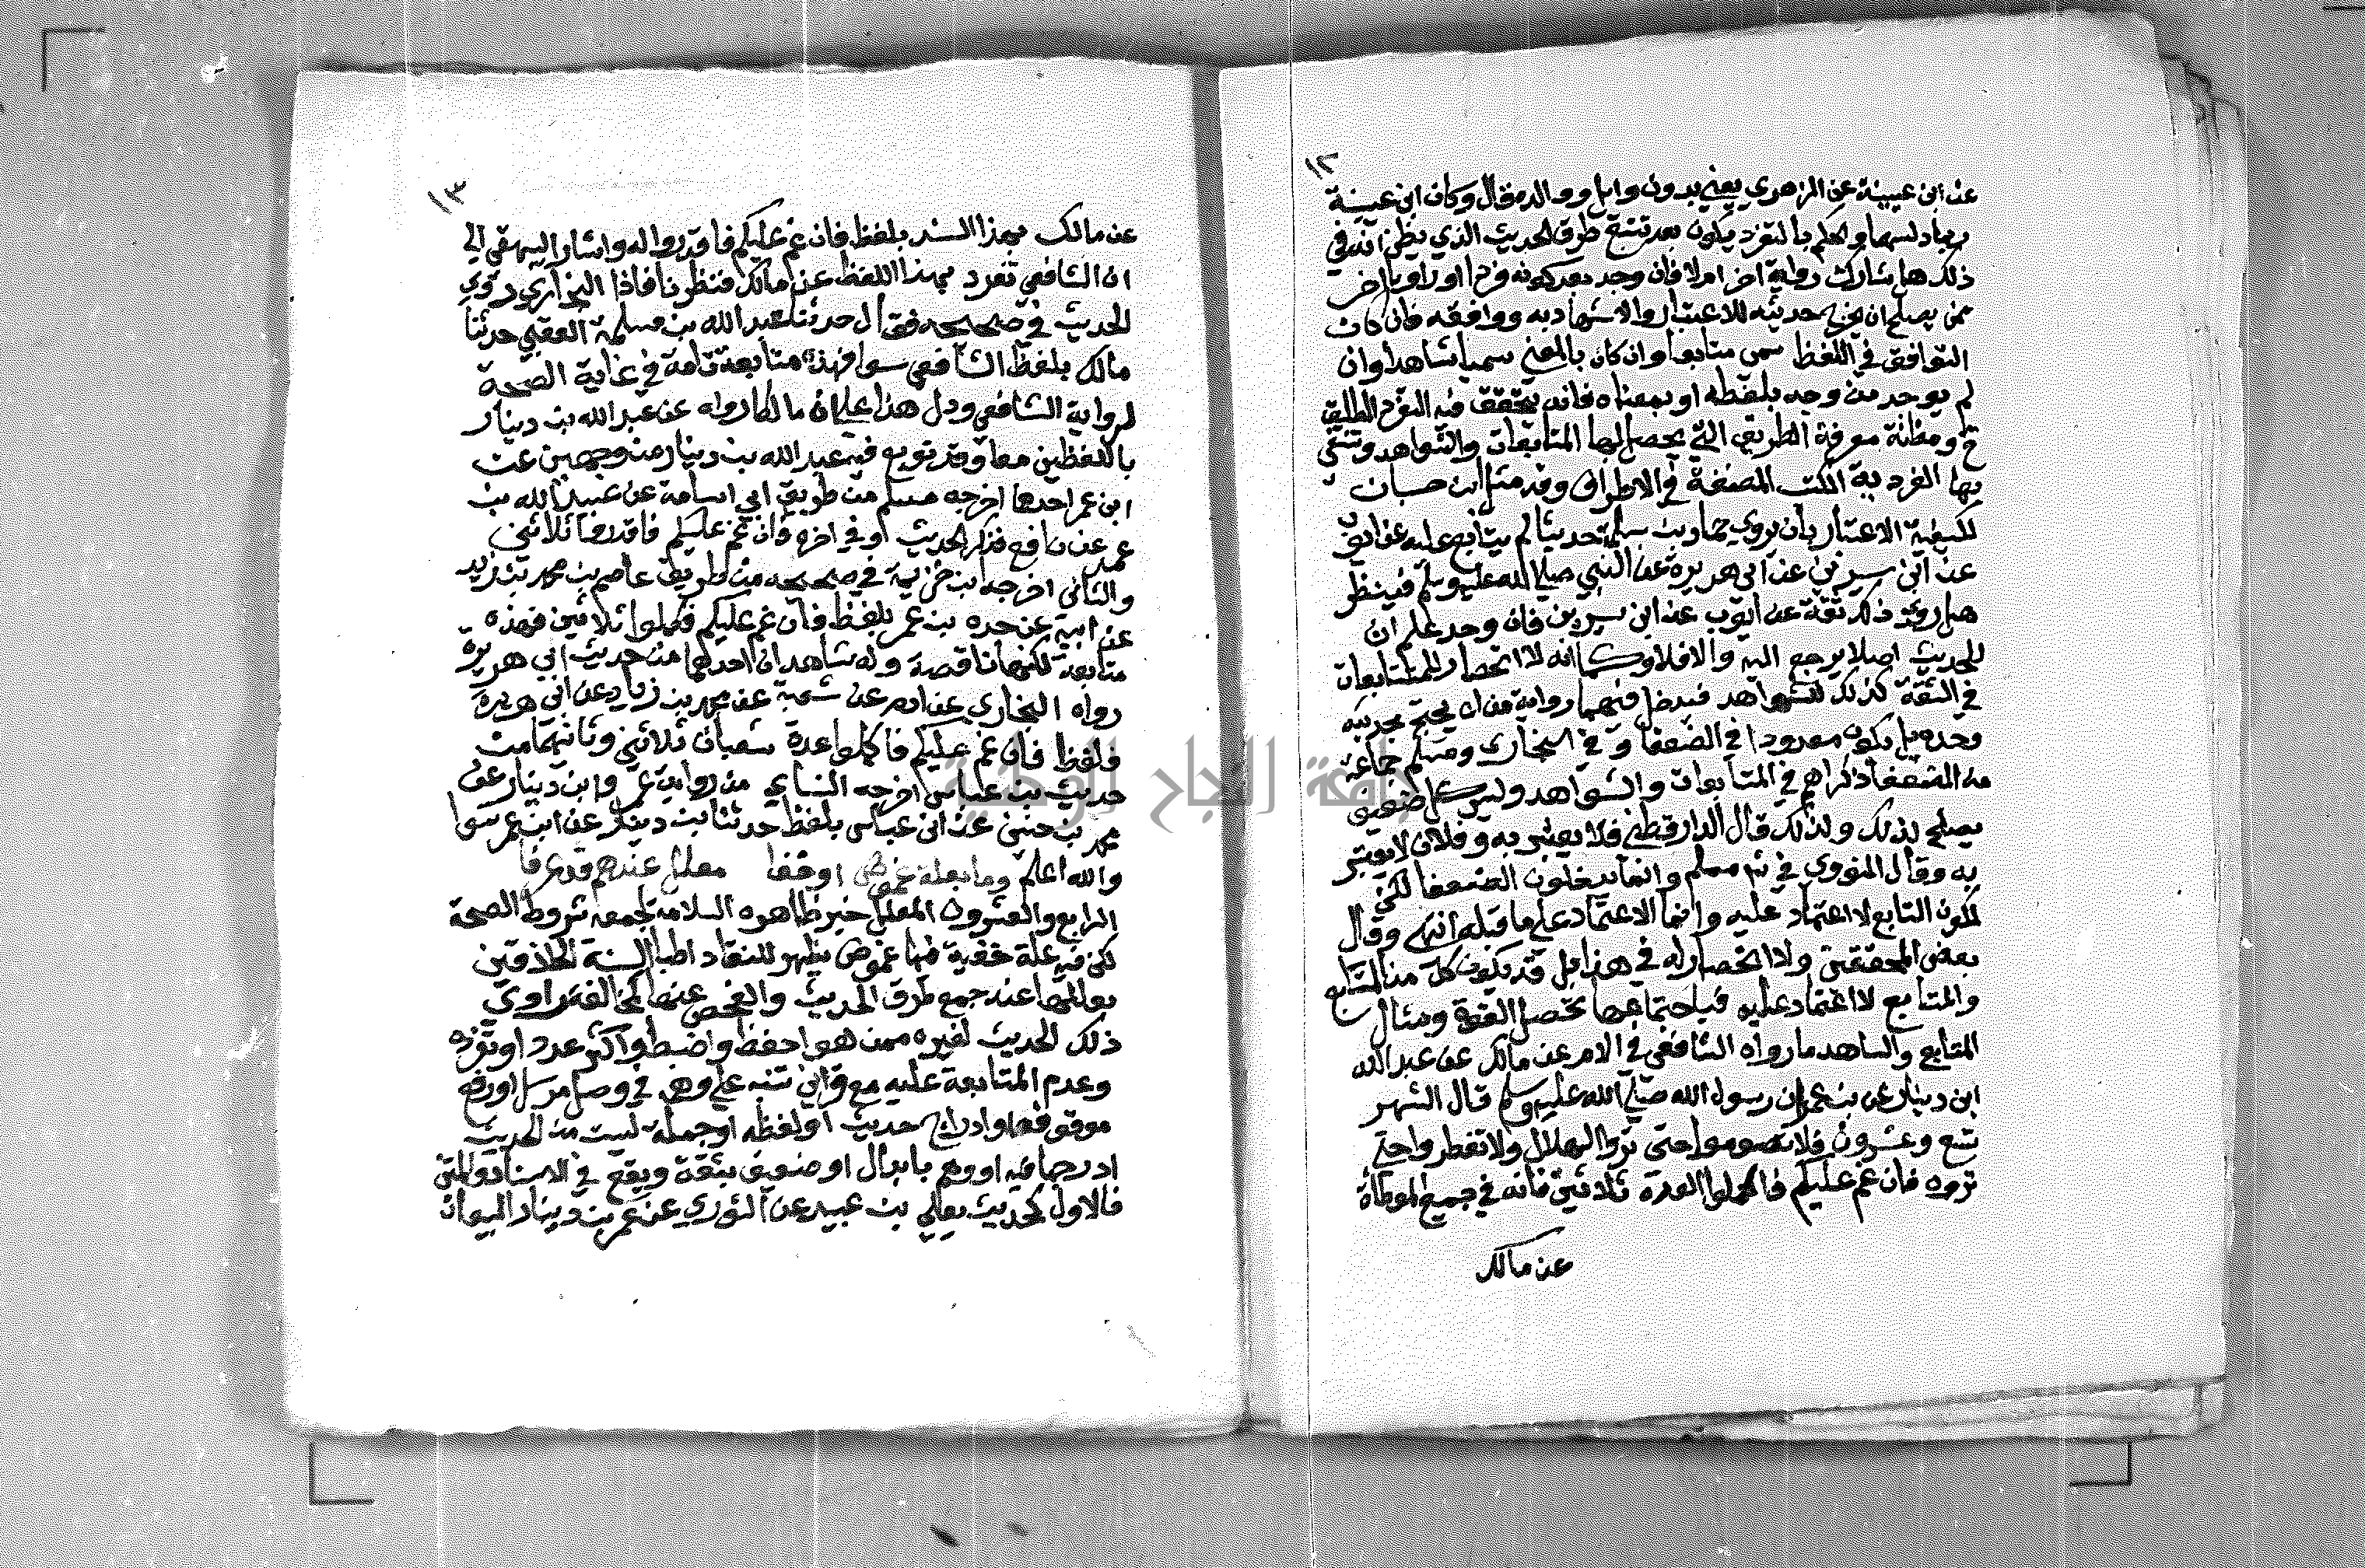 ١٢
عن ابن عيينة عن الزهري يعني بدون وايل ووالده قال وكان ابن عيينة
ربما دلسهما والحكم بالتفرد يكون بعد تتبع طرق الحديث الذي يظن انه في
ذلك هل شارك رواية اخر ام لا فان وجد بعد كونه فردا او راويا اخر
ممن يصلح ان يخرج حديثه للاعتبار والاستشهاد به ووافقه فان كان
التوافق في اللفظ سمى متابعا وان كان بالمعنى سمي شاهدا وان
لم يوجد من وجه بلفظه او بمعناه فانه يتحقق فيه التفرد المطلق
ح ومظانة معرفة الطريق التي يحصل بها المتابعات والشواهد وتنتفي
بها الفردية الكتب المصنفة في الاطراف وقد مثل ابن حبان
لكيفية الاعتبار بان يروي حماد بن سلمة حديثا لم يتابع عليه عن ايوب
عن ابن سيرين عن ابي هريرة عن النبي صلى الله عليه وسلم فينظر
هل روى ذلك ثقة عن ايوب عن ابن سيرين فان وجد علم ان
للحديث اصلا يرجع اليه والا فلا وكما انه لا انحصار للمتابعات
في الثقة كذلك للشواهد فيدخل فيهما رواية من لا يحتج بحديثه
وحده بل يكون معدودا في الضعفا وفي البخاري ومسلم جماعة
من الضعفا ذكراهم في المتابعات والشواهد وليس كل ضعيف
يصلح لذلك ولذلك قال الدارقطني فلا يعتبر به وفلان لا يعتبر
به وقال النووي في شم مسلم وانما يدخلون الضعفا لكي
لكون التابع لا اعتماد عليه وانما الاعتماد على ما قبله انتهى وقال
بعض المحققين ولا انحصار له في هذا بل قد يكون كل من المتابع
والمتابع لا اعتماد عليه فباجتماعهما تحصل القوة ومثال
المتابع والشاهد ما رواه الشافعي في الام عن مالك عن عبد الله
ابن دينار عن بن عمر ان رسول الله صلى الله عليه وسلم قال الشهر
تسع وعشرون فلا تصوموا حتى تروا الهلال ولا تفطروا حتى
تروه فان غم عليكم فاكملوا العدة ثلاثين فانه في جميع الموطأة
عن مالك
١٣
عن مالك بهذا السند بلفظ فان غم عليكم فاقدروا له واشار البيهقي الي
ان الشافعي تفرد بهذا اللفظ عن مالك فنظرنا فاذا البخاري روي
الحديث في صحيحه فقال حدثنا عبد الله بن مسلمة القعنبي حدثنا
مالك بلفظ الشافعي سوا فهذه متابعة تامة في غاية الصحة
لرواية الشافعي ودل هذا على ان مالكا رواه عن عبد الله بن دينار
باللفظين معا وقد توبع فيه عبد الله بن دينار من وجهين عن
ابن عمر احدهما اخرجه مسلم من طريق ابي اسامة عن عبيد الله بن
عمر عن نافع فذكر الحديث وفي اخره فان غم عليكم فاقدروا ثلاثين
والثاني اخرجه بن خزيمة في صحيحه من طريق عاصم بن محمد بن زيد
عن ابيه عن جده بن عمر بلفظ فان غم عليكم فكملوا ثلاثين فهذه
متابعة لكنها ناقصة وله شاهدان احدهما من حديث ابي هريرة
رواه البخاري عن ادم عن شعبة عن محمد بن زياد عن ابي هريرة
فلفظ فان غم عليكم فاكملوا عدة شعبان ثلاثين وثانيهما من
حديث بن عباس اخرجه النساي من رواية عمر وابن دينار عن
محمد بن حنين عن ابن عباس بلفظ حديث بن دينار عن ابن عمر سوا
والله اعلم وما بعلة غموض او خفا معلل عندهم قد عرفا
الرابع والعشرون المعلل خبر ظاهره السلامة لجمعه شروط الصحة
لكن فيه علة خفية فيها غموض يظهر للنقاد اطبا السنة الحاذقين
بعللها عند جمع طرق الحديث والفحص عنها كمخالفة راوي
ذلك الحديث لغيره ممن هو احفظ واضبط واكثر عددا وتفرده
وعدم المتابعة عليه مع قراين تنبه على وهم في وصل مرسل او رفع
موقوف او ادراج حديث او لفظه او جملة ليست من الحديث
ادرجها فيه او وهم بابدال او ضعيف بثقة ويقع في الاسناد والمتن
فالاول كحديث يعلى بن عبيد عن الثوري عن عمر بن دينار البيعان